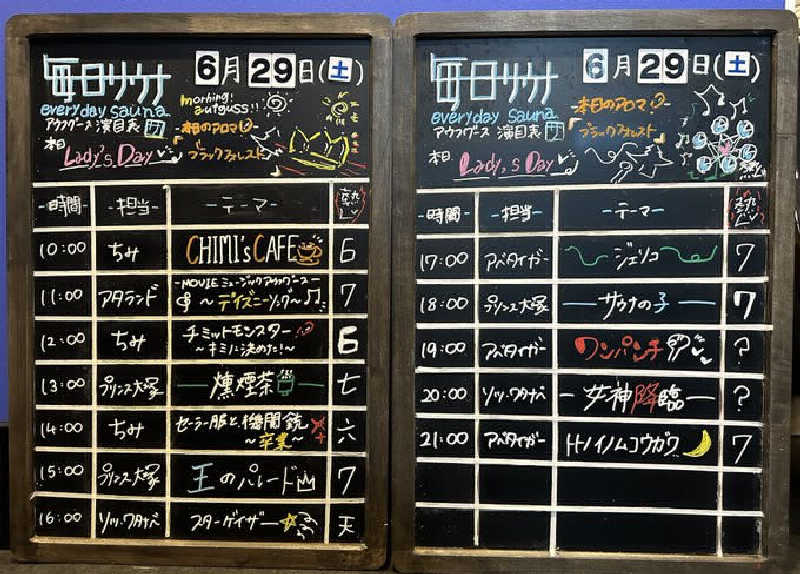 毎日サウナ 6月29日(土)
everyday sauna
morning! aufguss!!
アウフグース演目表
-本日のアロマ-
ブラックフォレスト
本日 Lady's Day
-時間- -担当- -テーマ- 熱
10:00 ちみ CHIMI's CAFE 6
11:00 アタランド -MOVIEミュージックアウフグース-
～ディズニーソング～ 7
12:00 ちみ チミットモンスター
～キミに決めた!～ 6
13:00 プリンス大塚 燻煙茶 七
14:00 ちみ セーラー服と機関銃
～卒業～ 六
15:00 プリンス大塚 王のパレード 7
16:00 ソソ・ワタナベ スターゲイザー 天
毎日サウナ 6月29日(土)
everyday sauna
アウフグース演目表
-本日のアロマ-
ブラックフォレスト
本日 Lady's Day
-時間- -担当- -テーマ- 熱
17:00 アベタイガー ジェリコ 7
18:00 プリンス大塚 サウナの子 7
19:00 アベタイガー ワンパンチ ?
20:00 ソソ・ワタナベ -女神降臨- ?
21:00 アベタイガー ヒトノイノムコウガワ 7